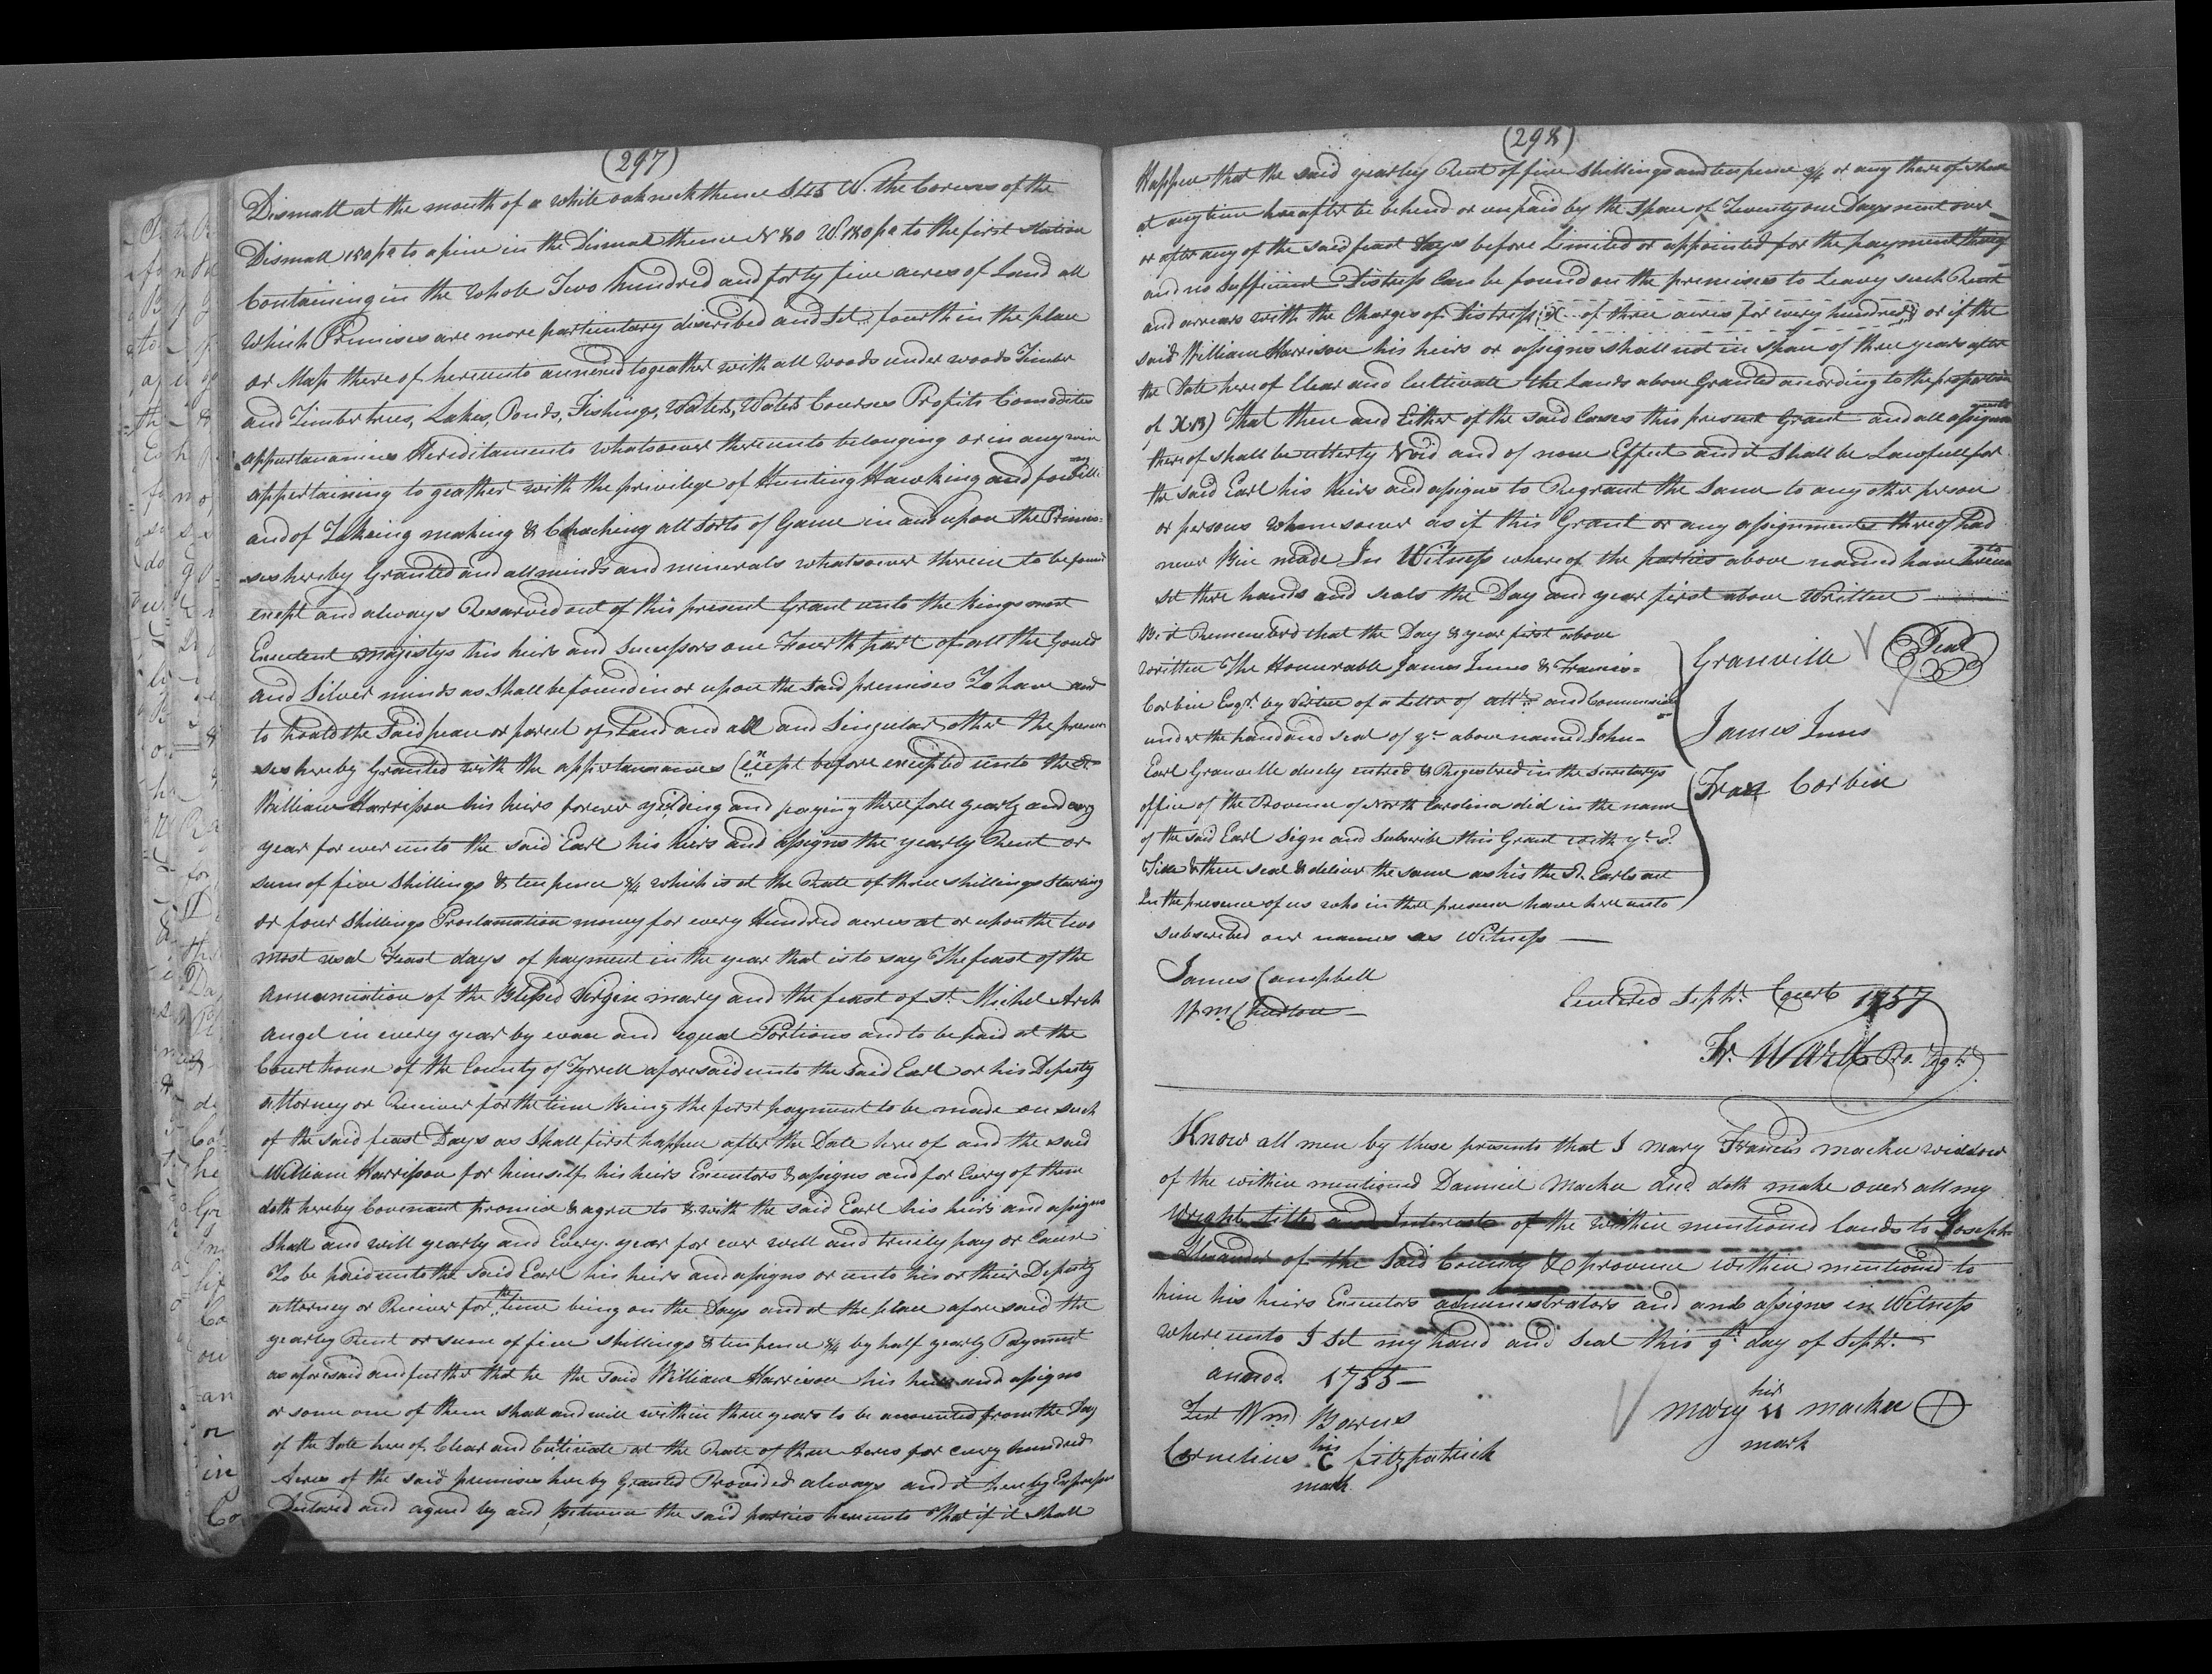 (297)
Dismall at the mouth of a white oak neck thence S45 W. the Corses of the
Dismall 180 po to a pine in the Dismal thence N 80 W. 180 po. to the first station
Containing in the whole Two hundred and forty five acres of Land all
which Premises are more particulary discribed and Set fourth in the plan
or Map there of hereunto annexed togeather with all woods under woods Timber
and Timber trees, Lakes, Ponds, Fishings, Waters, Water Courses Profits Comodites
appurtanances Hereditaments whatsoever thereunto belonging or in any wise
appertaining to geather with the privilege of Hunting Hawking and fowlling
and of Takeing making & Catching all Sorts of Game in and upon the Premis=
=ses hereby Granted and all minds and minerals whatsoever therein to be found
except and always Resarved out of this present Grant unto the kings most
Excelent Majestys his heirs and Successors one Fourth part of all the Gould
and Silver minds as Shall be found in or upon the said premises To have and
to hould the Said peace or parcel of Land and all and Singular other the premi
ses hereby Granted with the appertanances (except before excepted unto the sd.
William Harrison his heirs forever yeilding and paying therefore yearly and every
year for ever unto the said Earl his heirs and assigns the yearly Rent or
sum of five Shillings & ten pence 3/4 which is at the Rate of three shillings Starling
or four shillings Proclamation money for every Hundred acres at or upon the two
most usal Feast days of payment in the year that is to say The feast of the
Annunciation of the Blessed Virgin mary and the feast of St. Michel Arch
angel in every year by even and equal Portions and to be paid at the
Court house of the County of Tyrrell aforesaid unto the Said Earl or his Deputy
attorney or Reciever for the time Being the first payment to be made on such
of the said feast Days as Shall first happen after the Date here of and the said
William Harrison for himself his heirs Executors & assigns and for Every of them
doth hereby Covenant promise & agree to & with the said Earl his heirs and assigns
Shall and will yearly and Every year for ever well and truely pay or Cause
To be paid unto the said Earl his heirs and assigns or unto his or their Deputy
attorney or Reciever for the time being on the Days and at the place aforesaid the
yearly Rent or sum of five shillings & ten pence 3/4 by half yearly Payment
as aforesaid and further that he the Said William Harrison his heirs and assigns
or some one of them shall and will within three years to be accounted from the Day
of the Date here of Clear and Cultivate at the Rate of three Acres for every hundred
Acres of the said premises here by Granted Provided always and it hereby Expressly
Declared and agreed by and Between the said parties hereunto That if it Shall
(298)
Happen that the said yearly Rent of five Shillings and ten pence 3/4 or any there of shall
at any time hereafter be behind or unpaid by the Space of Twenty one Days next over
or after any of the said feast Days before Limited or appointed for the payment thereof
and no Sufficient Distress Can be found on the premises to Leavy such Rent
and arrears with the Charges of Distress of three acres for every hundred or if the
said William Harrison his heirs or assigns shall not in space of three years after
the Date here of Clear and Cultivate the Lands above Granted according to the proportion
of That then and Either of the said Cases this present Grant and all assignments
there of shall be utterly Void and of none Effect and it Shall be Lawfull for
the said Earl his heirs and assigns to Regrant the Same to any other person
or persons whomsoever as if this Grant or any assignments thereof had
never Bin made In Witness where of the parties above named have hereunto
set there hands and seals the Day and year first above Written
Be it Rememberd that the Day & year first above
written The Honourable James Innes & Francis=
Corbin Esqr. by Virtue of a Letter of attr. and Commission
under the hand and seal of ye above named John=
Earl Granville duely entred & Registered in the Secretarys
office of the Provence of North Carolina did in the name
of the said Earl Sign and Subscribe this Grant with ye sd.
Title & there seal & deliver the same as his the sd. Earls act
In the presence of us who in there presence have here unto
subscribed our names as Witness
Granville Seal
James Innes
Fran Corbin
James Campbell
Wm. Churton
Entered Septr. Court 1757
Fr. Ward Pr. Regtr.
Know all men by these presents that I mary Francis mackee widdow
of the within mentioned Danniel Mackee decd. doth make over all my
Wright title and Interest of the within mentioned lands to Joseph
Alexander of the said County & province within mentioned to
him his heirs Executors administrators and and assigns in Witness
where unto I set my hand and Seal this 9th. day of Septr.
anodo. 1755
Test Wm. Barnes
Cornelius his C fitzpatrick
mark
mary her mackee
mark